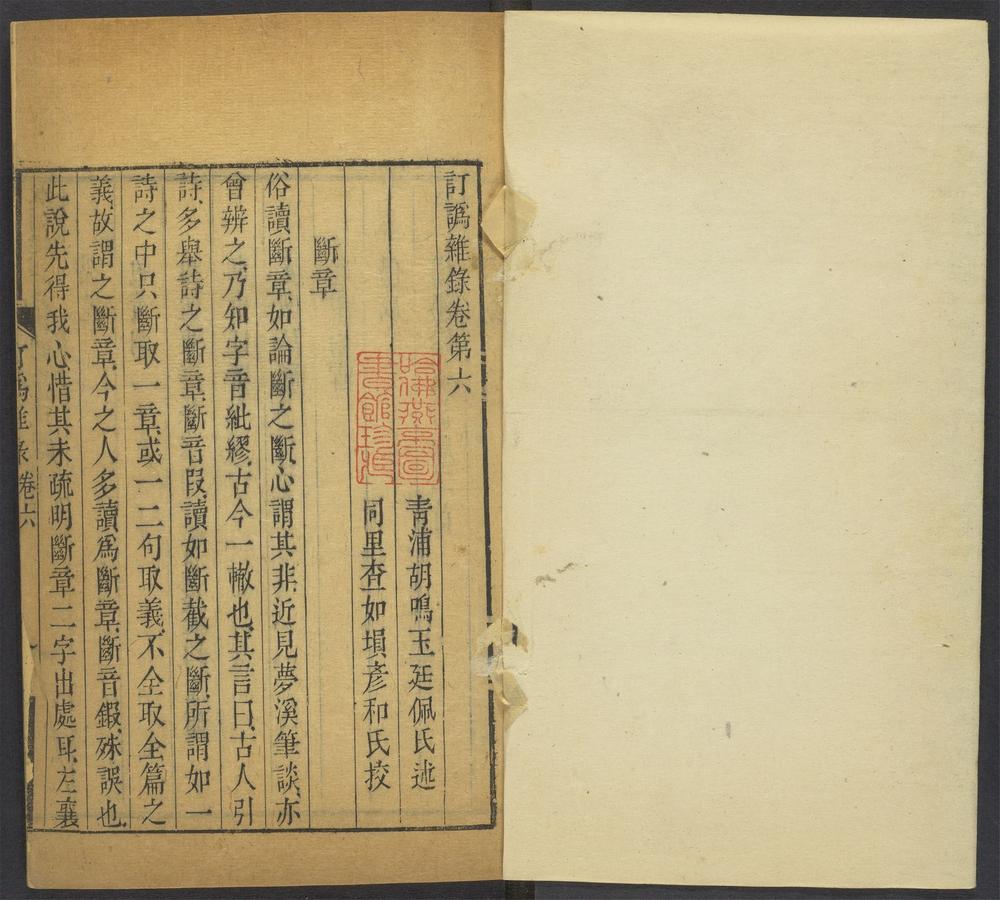 訂譌雜錄卷第六
青浦胡鳴玉廷佩氏述
同里查如塤彥和氏挍
哈佛燕京圖
書館珍藏
斷章
俗讀斷章如論斷之斷、心謂其非、近見夢溪筆談、亦
曾辨之、乃知字音紕繆、古今一轍也、其言曰、古人引
詩、多舉詩之斷章、斷音段、讀如斷截之斷、所謂如一
詩之中、只斷取一章、或一二句取義、不全取全篇之
義、故謂之斷章、今之人多讀爲斷章、斷音鍛、殊誤也、
此說先得我心、惜其未疏明斷章二字出處耳、左襄
訂譌雜錄卷六
一